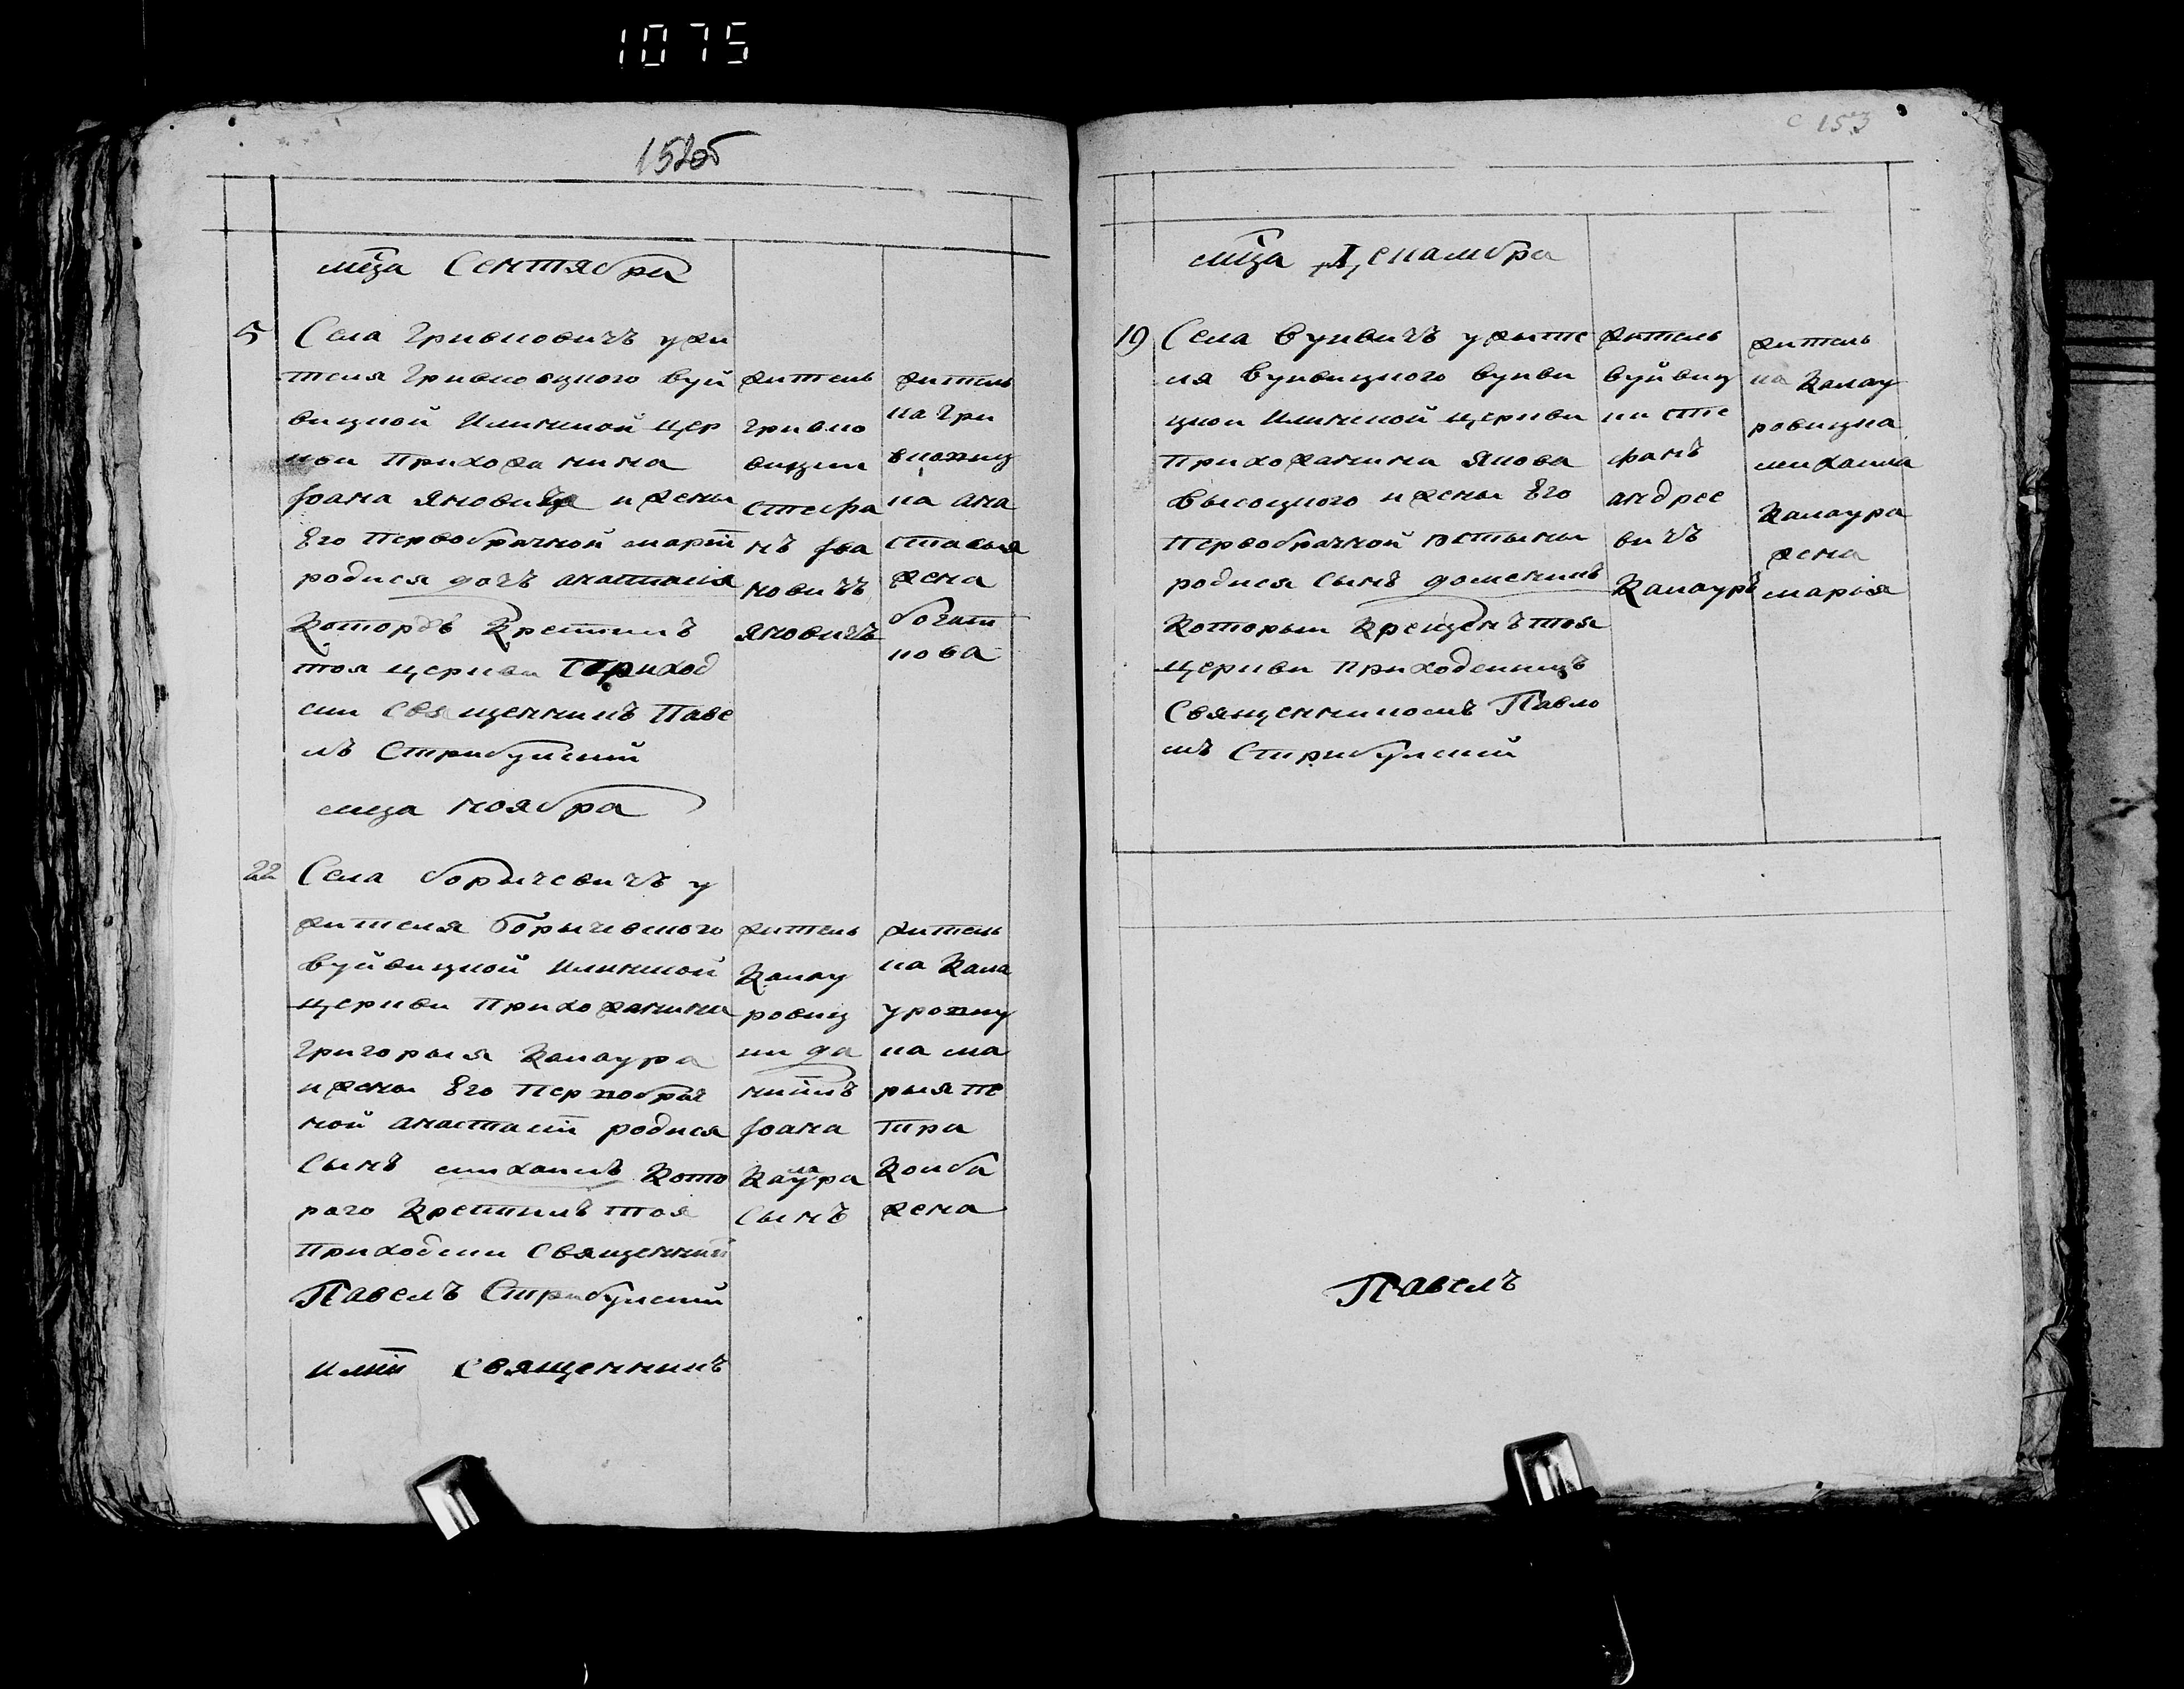 1075
152об
мц҃а Сентября
5
Села Гривковичъ у жи
теля Гривковцкого Вуй
вицкой Илинской цер
кви прихожанина
Іоана Яновича и жены
Его первобрачной марти
родися дочъ анастасія
Которѣ Крестилъ
тоя церкви приход
ски священникъ Паве
лъ Стрибулский
житель
гривко
вицки
стефа
нъ іва
новичъ
яновичъ
житель
ка гри
вковиц
ка ана
стасыя
жена
богат
кова
мца ноября
22
Села борычевичъ у
жителя Борычевского
Вуйвицкой Илинской
церкви прихожанина
Григорыя Калаура
и жены Его первобрач
ной анастасіи родися
Сынъ михаилъ Кото
раго Крестилъ тоя
приходски священникъ
Павелъ Стрибулский
житель
Калау
ровиц
ки да
ниилъ
Іоана
Калаура
Сынъ
житель
ка Кала
уровиц
ка ма
рыя пе
тра
Колба
жена
илиін священникъ
с 153
мц҃а Декамбра
19
Села Вуивичъ у жыте
ля Вуивицкого Вуиви
цкои Илинской церкви
прихожанина Якова
Высоцкого и жены Его
первобрачной юстыны
родися Сынъ доменикъ
Которыи Крещенъ тоя
церкви приходскимъ
Священникомъ Павло
мъ Стрибулский
житель
вуйвиц
ки сте
фанъ
андрее
вичъ
Калауръ
житель
ка Калау
ровицка
михаила
Калаура
жена
марія
Павелъ